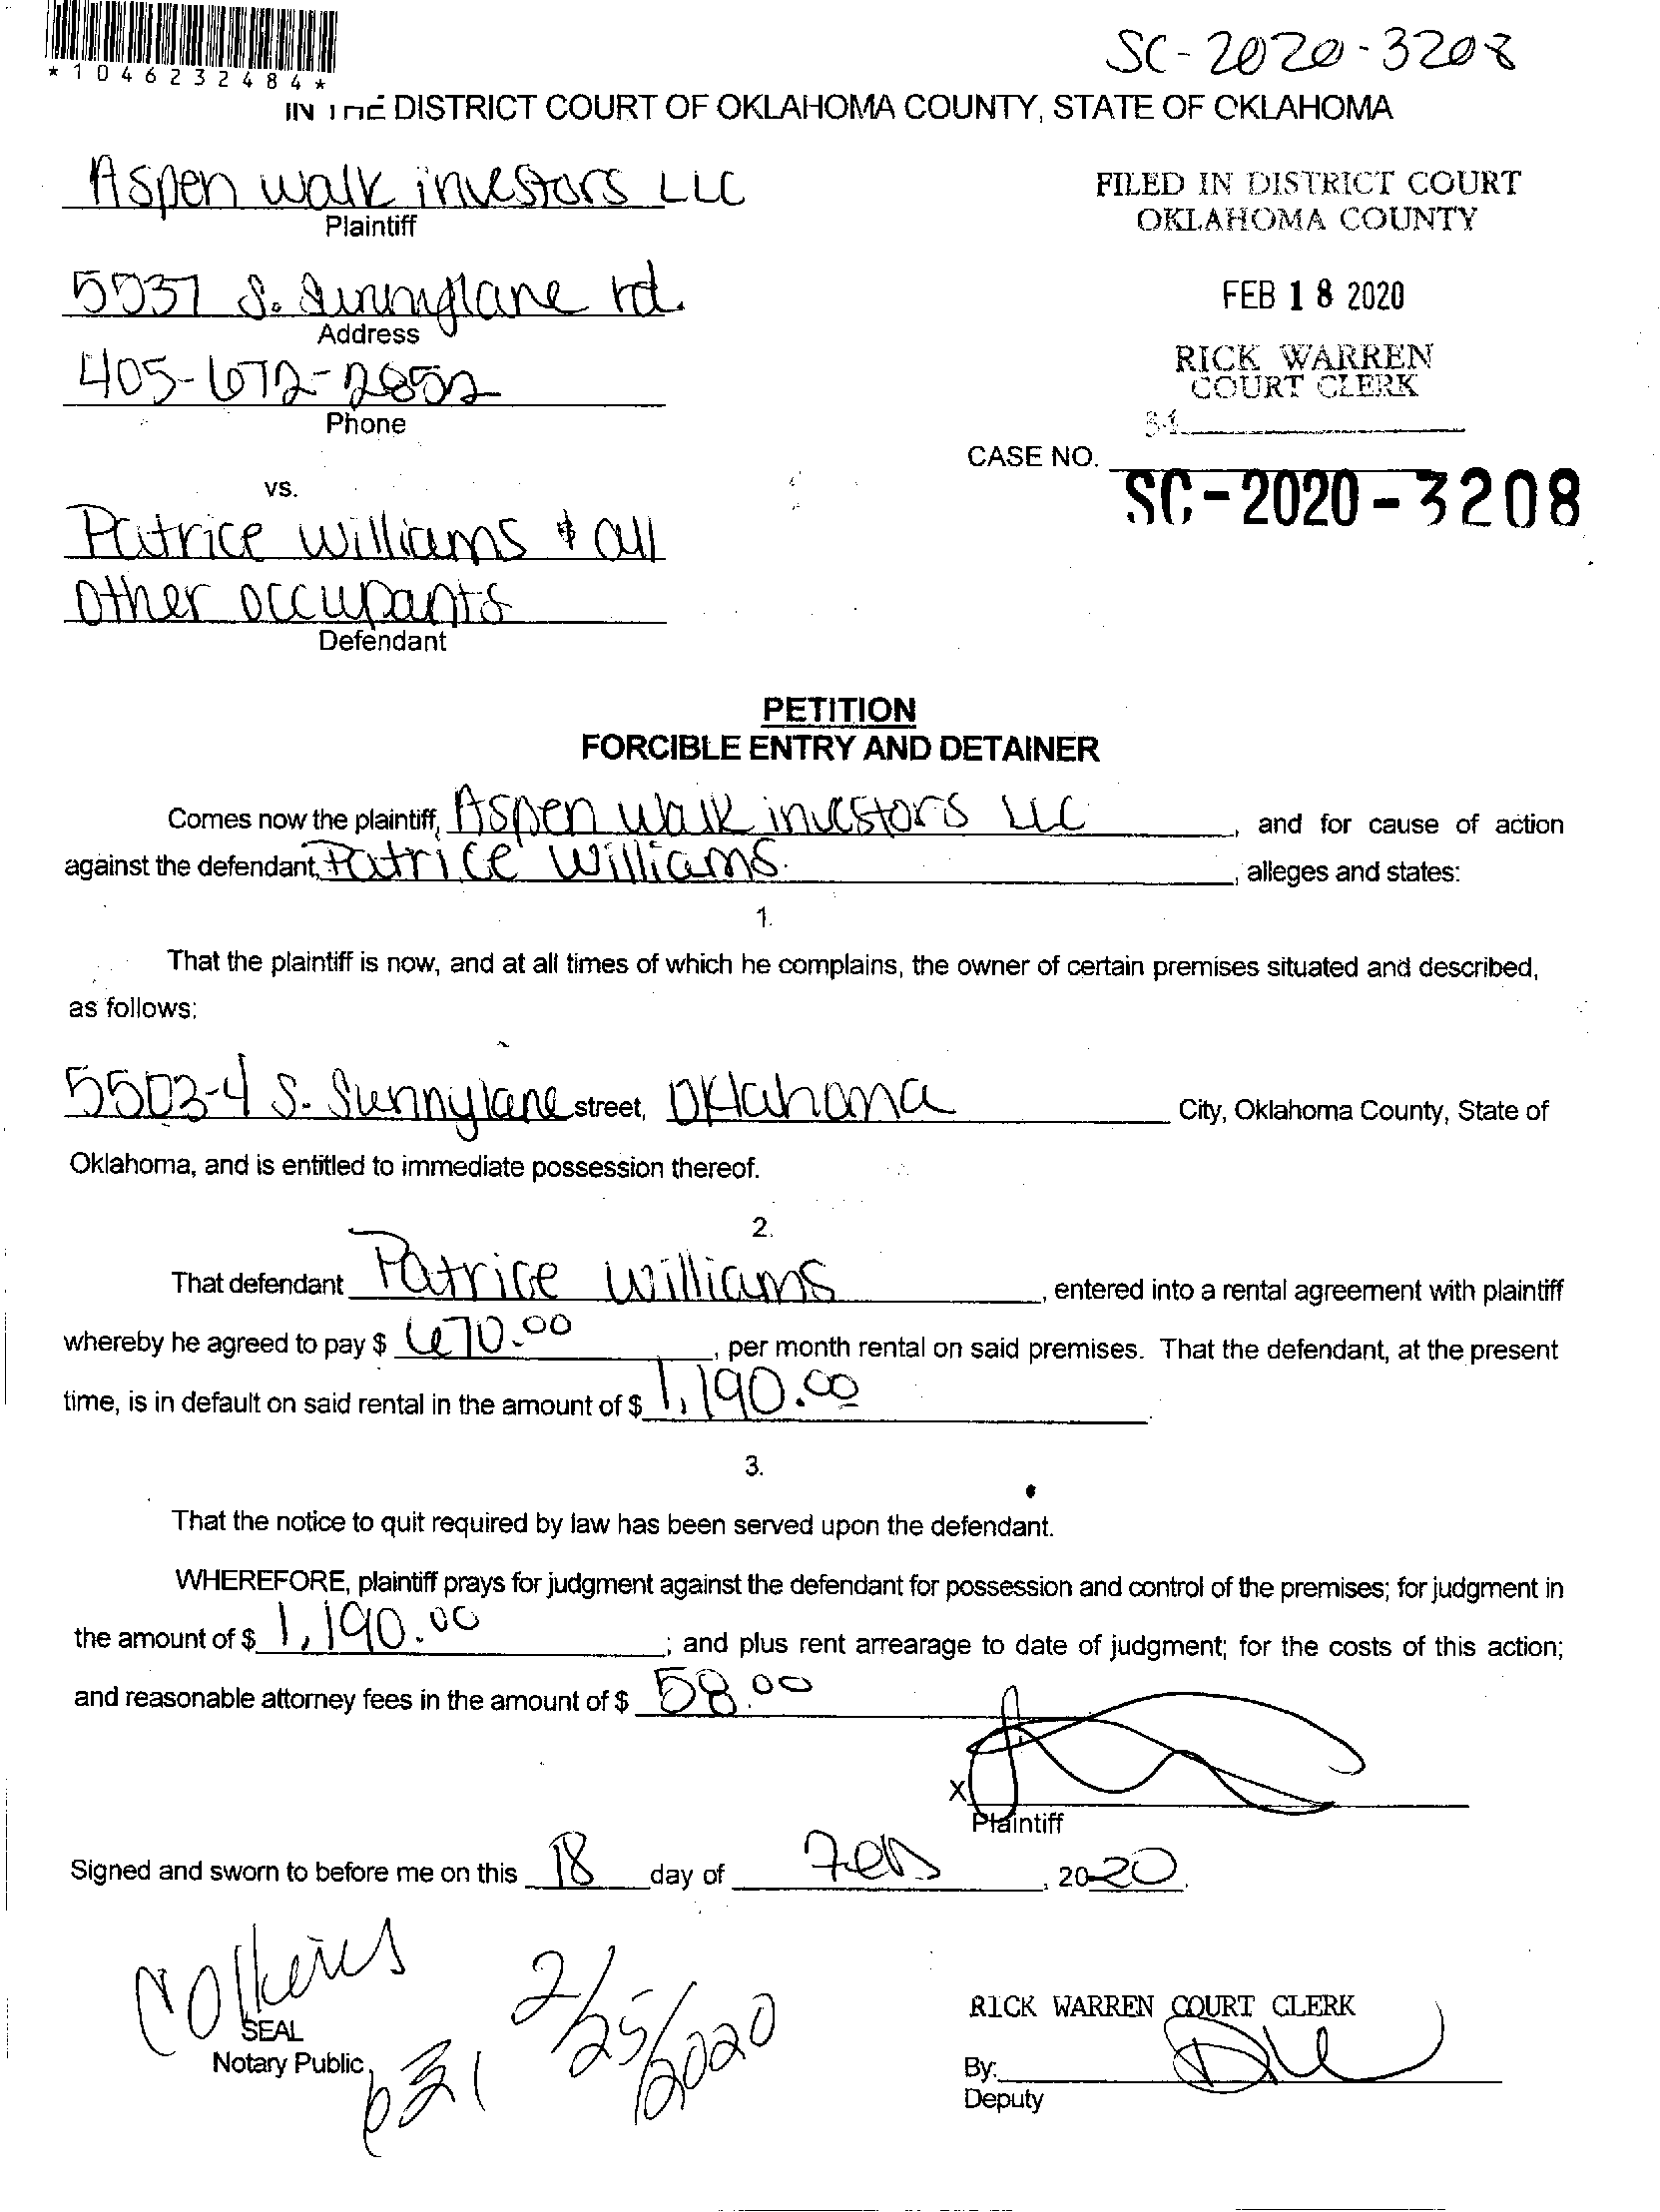 *1046232484*
SC-2020-3208
IN THE DISTRICT COURT OF OKLAHOMA COUNTY, STATE OF OKLAHOMA
Aspen walk investors LLC
Plaintiff
FILED IN DISTRICT COURT
OKLAHOMA COUNTY
5537 S. Sunnylane rd.
Address
FEB 18 2020
405-672-2852
Phone
RICK WARREN
COURT CLERK
34
CASE NO.
SC-2020-3208
vs.
Patrice williams & all
other occupants
Defendant
PETITION
FORCIBLE ENTRY AND DETAINER
Comes now the plaintiff, Aspen walk investors LLC, and for cause of action
against the defendant, Patrice Williams, alleges and states:
1.
That the plaintiff is now, and at all times of which he complains, the owner of certain premises situated and described,
as follows:
5503-4 S. Sunnylane street, Oklahoma City, Oklahoma County, State of
Oklahoma, and is entitled to immediate possession thereof.
2.
That defendant Patrice williams, entered into a rental agreement with plaintiff
whereby he agreed to pay $ 670.00, per month rental on said premises. That the defendant, at the present
time, is in default on said rental in the amount of $ 1,190.00.
3.
That the notice to quit required by law has been served upon the defendant.
WHEREFORE, plaintiff prays for judgment against the defendant for possession and control of the premises; for judgment in
the amount of $ 1,190.00; and plus rent arrearage to date of judgment; for the costs of this action;
and reasonable attorney fees in the amount of $ 58.00
X
Plaintiff
Signed and sworn to before me on this 18 day of Feb, 2020.
2/25/2020
SEAL
Notary Public
RICK WARREN COURT CLERK
By:
Deputy